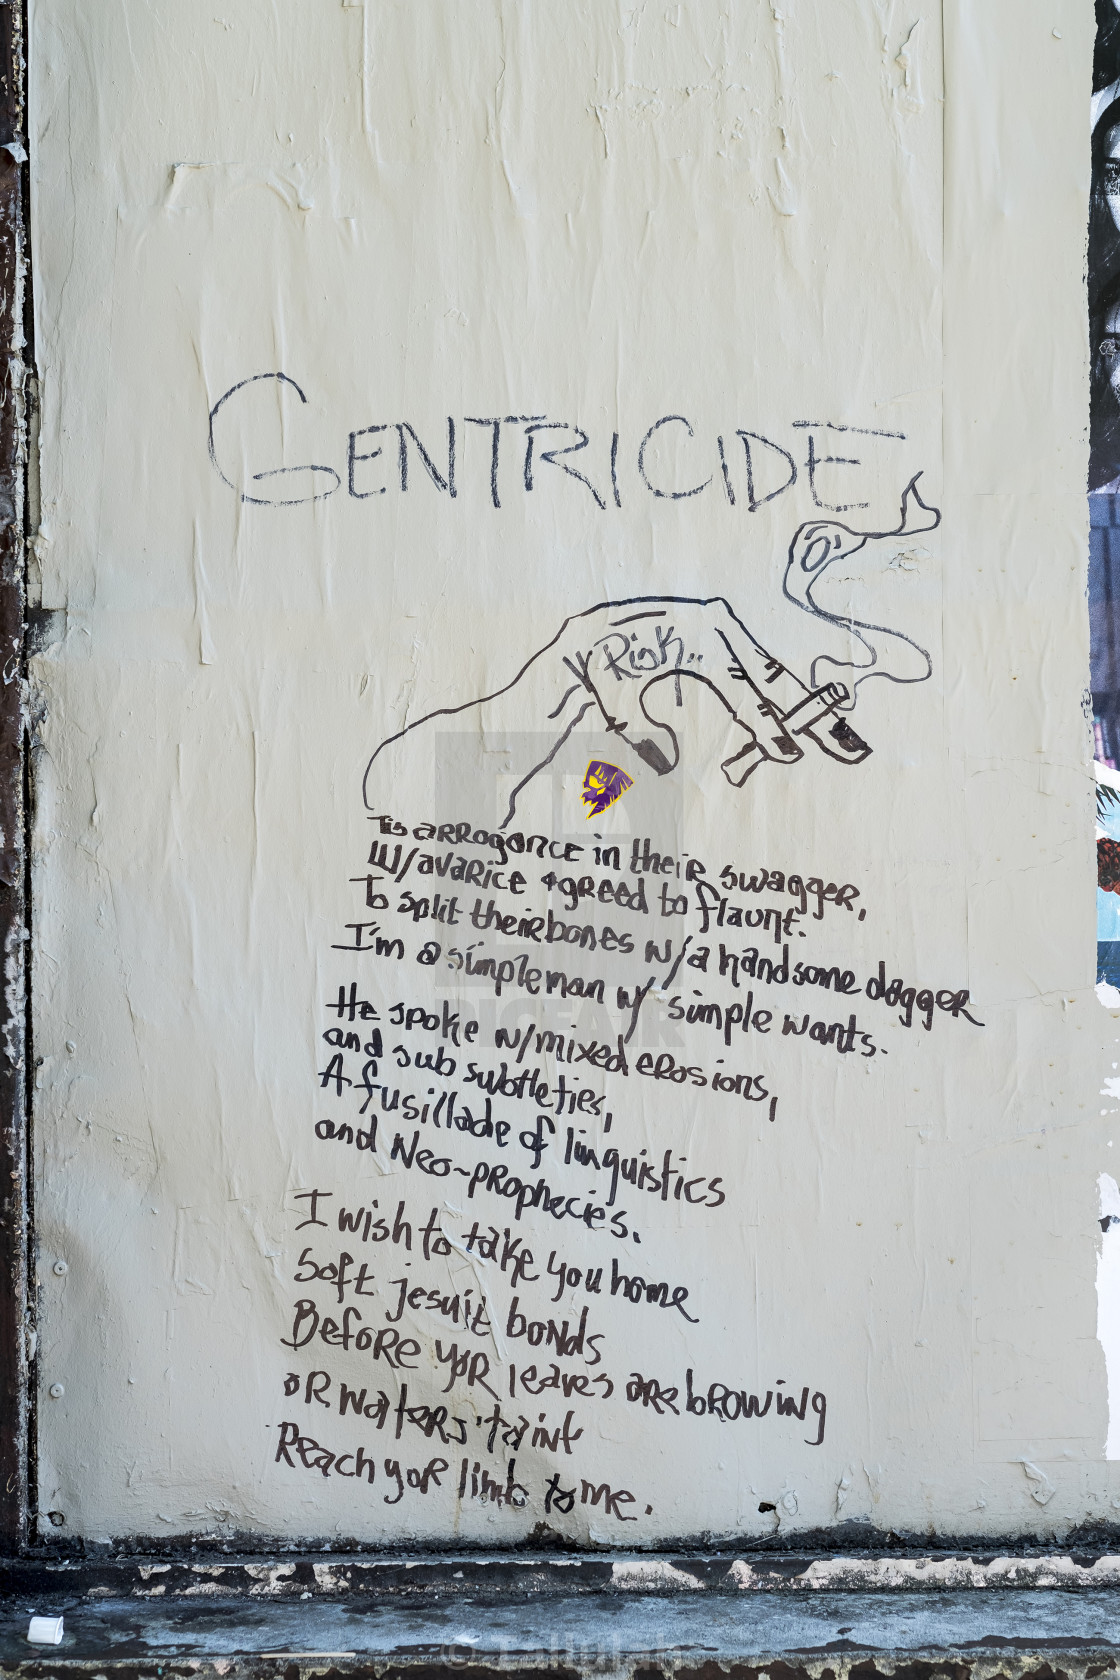 GENTRICIDE
Risk..
Tis arrogance in their swagger,
W/avarice + greed to flaunt.
To split their bones w/a handsome dagger
I'm a simple man w/ simple wants.
He spoke w/mixed erosions,
and sub subtleties,
A fusillade of linguistics
and Neo-prophecies.
I wish to take you home
Soft jesuit bonds
Before yor leaves are browing
or waters' taint
Reach yor limb to me.
PICFAIR
© Tallulah